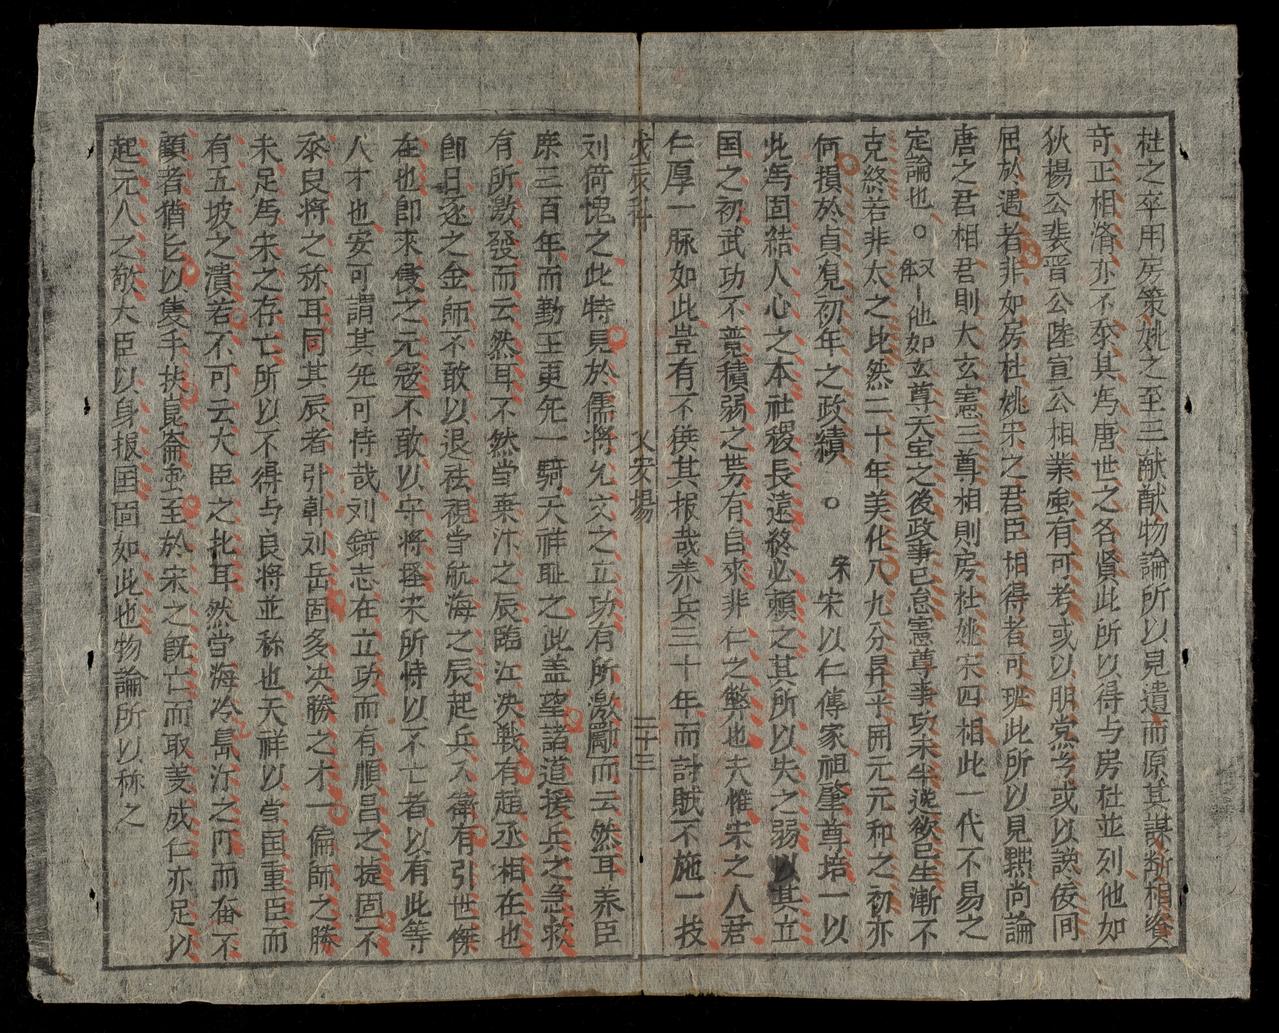 杜之卒用房策姚之至三献猷物論所以見遺而原其謀断相資
竒正相済亦不䋲其為唐世之各賢此所以得与房杜並列他如
狄揚公裴晋公陸宣公相業虽有可考或以朋党今或以諛佞间
居於遇者非如房杜姚宋之君臣相得者可班此所以見黜尚論
唐之君相君則大玄憲三尊相則房杜姚宋四相此一代不易之
定論也○又体他如玄尊天宝之後政事已怠憲尊事功未半送欲已生漸不
克終若非太之比然二十年美化八九分昇平囲元元和之初亦
何損於貞覌初年之政績○宋宋以仁傳家祖肇尊培一以
此為固結人心之本社稷長遠终必頼之其所以失之弱以其立
国之初武功不競積弱之势有自来非仁之弊也夫惟宋之人君
仁厚一脉如此豈有不俟其报哉养兵三十年而討賊不施一技
戊辰科 乂安場 二十三
刘倚愧之此特見於儒將允文之立功有所激勵而云然耳养臣
庶三百年而勤王更旡一騎天祥耻之此盖望諸道援兵之急救
有所激發而云然耳不然当棄汴之辰臨江决戦有趙丞相在也
即日逐之金師不敢以退社視当航海之辰起兵入衛有引世傑
在也即來侵之元冦不敢以守将摇宋所恃以不亡者以有此等
人才也安可謂其旡可恃哉刘錡志在立功而有順昌之捷固不
忝良将之称耳同其辰者引韩刘岳固多决勝之才一偏師之勝
未足為宋之存亡所以不得与良將並称也天祥以当囯重臣而
有五坡之潰若不可云大臣之北耳然当海冷島沂之冋而奋不
顧者猶匕以隻手扶崑崙至於宋之既亡而取义成仁亦足以
起元人之敬大臣以身报囯固如此也物論所以称之